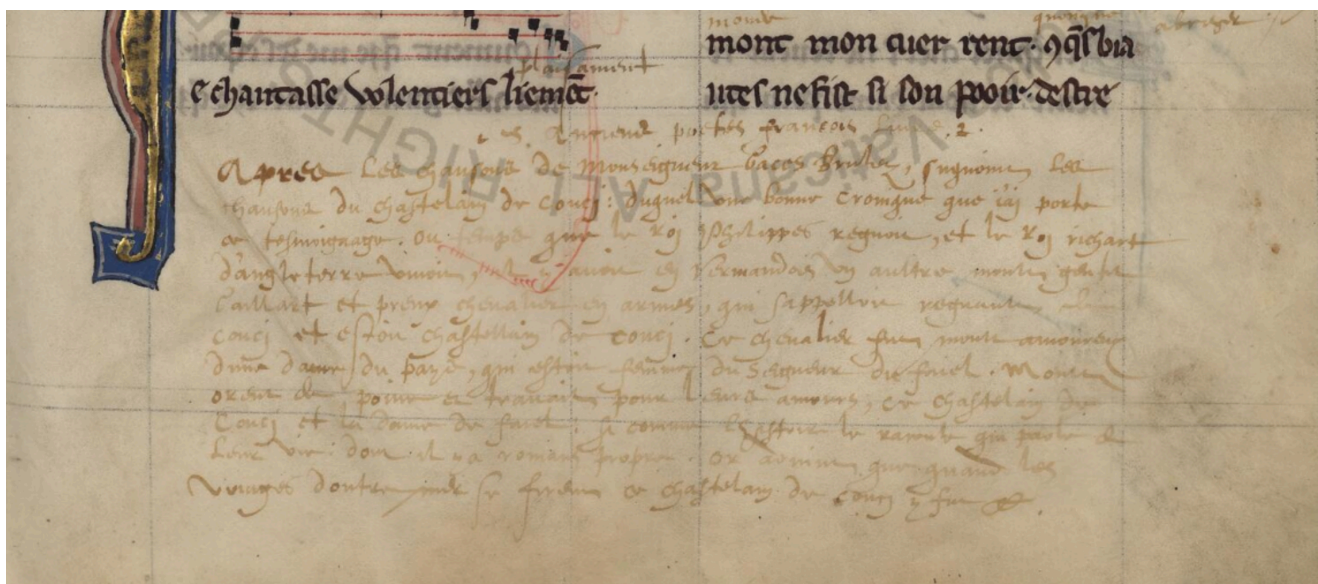 monde
mont mon cuer rent. ꝯq̃s bia
plaisament
e chantasse volentiers liemẽt.
utes ne fist si son pooir. destre
anciens poetes francois livre. 2.
Apres les chansons de Monseigneur Gaces Brulez, suyvoint les
chansons du chastelain de Couci: duquel une bonne cronique que j'ai porte
ce tesmoignage. Ou temps que le Roj Philippes regnoit, et le Roj richart
d'angleterre vivoit, avoit en Vermandois un aultre moult gentil
Gaillart et preux chevalier en armes, qui s'appelloit regnault
Couci et estoit chastellain de Couci. Ce chevalier fut moult amoureux
d'une dame du pays, qui estoit femme du Seigneur du faiel. Moult
orent de poine et travail pour leurs amours, ce chastelain de
Couci et la dame de faiel. si comme l'histoire le raconte qui parle de
leur vie: dont il y a romans propre. Or advint que quand les
voiages d'outre mer se firent ce chastelain de Couci y fut